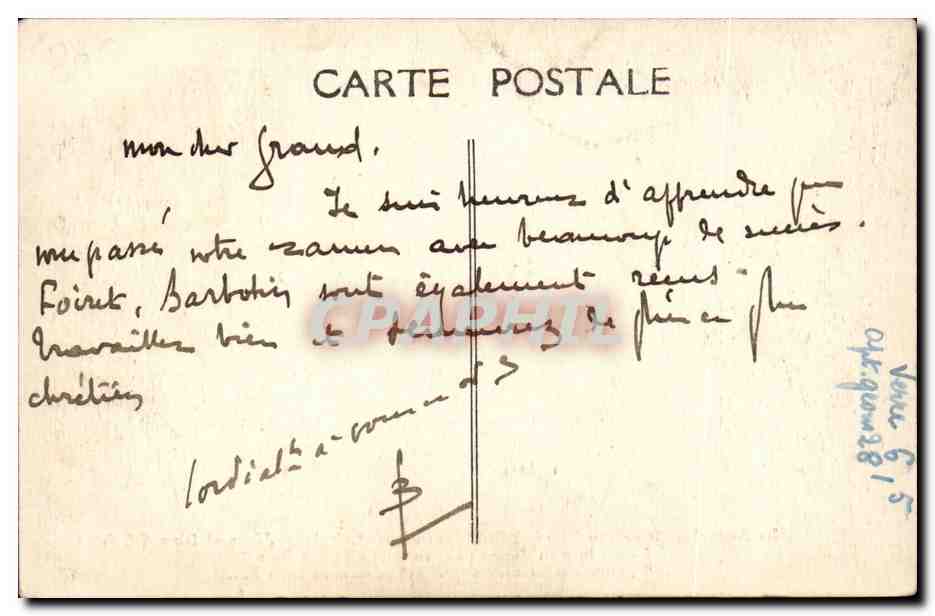 CARTE POSTALE
mon cher Graud.
Je suis heureux d'apprendre que
vous passé votre examen avec beaucoup de succès.
Foiret, Barbotin sont également reçus.
Travaillez bien et demeurez de plus en plus
chrétien
Cordialt à
B
CPAPHIL
Verre 6 5